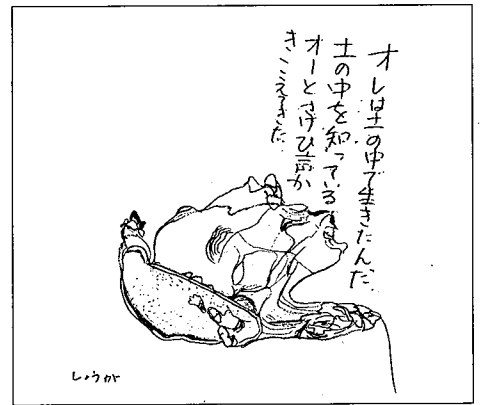 オレは土の中で生きたんだ
土の中を知っている
オーとさけび声が
きこえてきた
しょうが